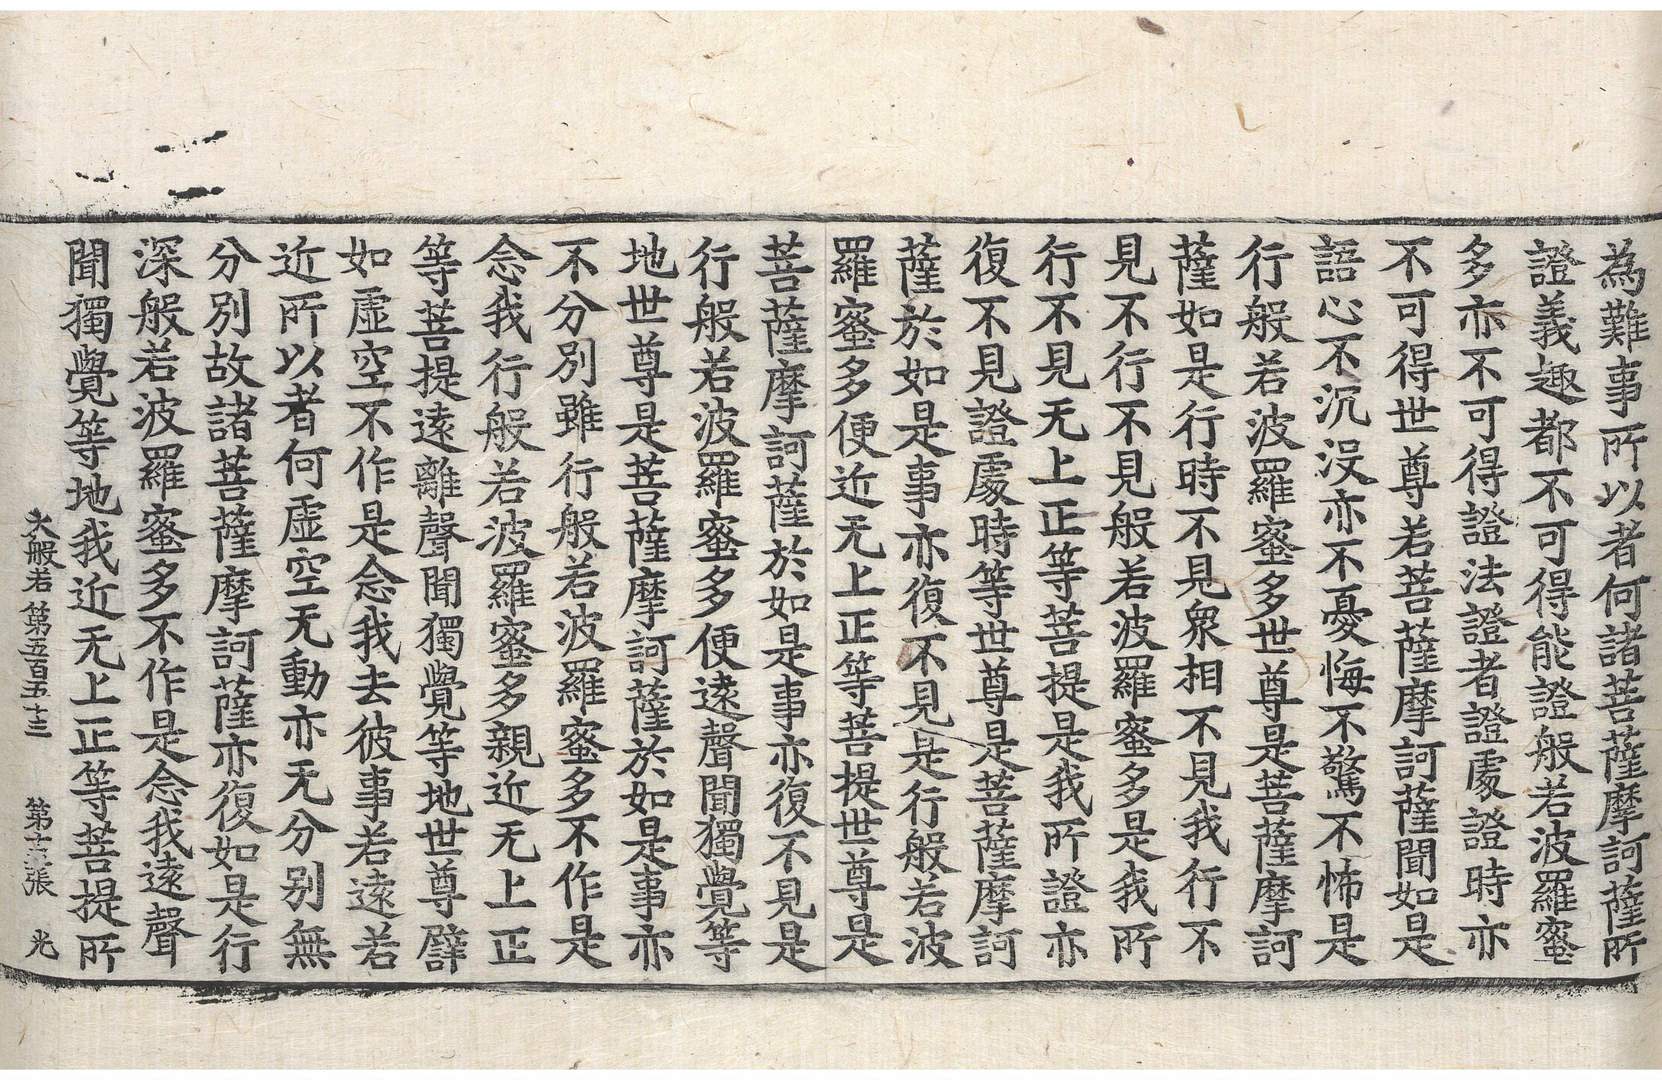 為難事所以者何諸菩薩摩訶薩所
證義趣都不可得能證般若波羅蜜
多亦不可得證法證者證處證時亦
不可得世尊若菩薩摩訶薩聞如是
語心不沉沒亦不憂悔不驚不怖是
行般若波羅蜜多世尊是菩薩摩訶
薩如是行時不見衆相不見我行不
見不行不見般若波羅蜜多是我所
行不見无上正等菩提是我所證亦
復不見證處時等世尊是菩薩摩訶
薩於如是事亦復不見是行般若波
羅蜜多便近无上正等菩提世尊是
菩薩摩訶薩於如是事亦復不見是
行般若波羅蜜多便遠聲聞獨覺等
地世尊是菩薩摩訶薩於如是事亦
不分別雖行般若波羅蜜多不作是
念我行般若波羅蜜多親近无上正
等菩提遠離聲聞獨覺等地世尊譬
如虛空不作是念我去彼事若遠若
近所以者何虛空无動亦无分別無
分別故諸菩薩摩訶薩亦復如是行
深般若波羅蜜多不作是念我遠聲
聞獨覺等地我近无上正等菩提所
大般若第五百五十三 第十三張 光